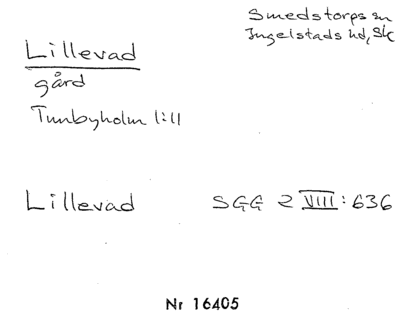 Smedstorps sn
Ingelstads hd, Sk
Lillevad
gård
Tunbyholm 1:11
Lillevad SGG 2 VIII: 636
Nr 16405